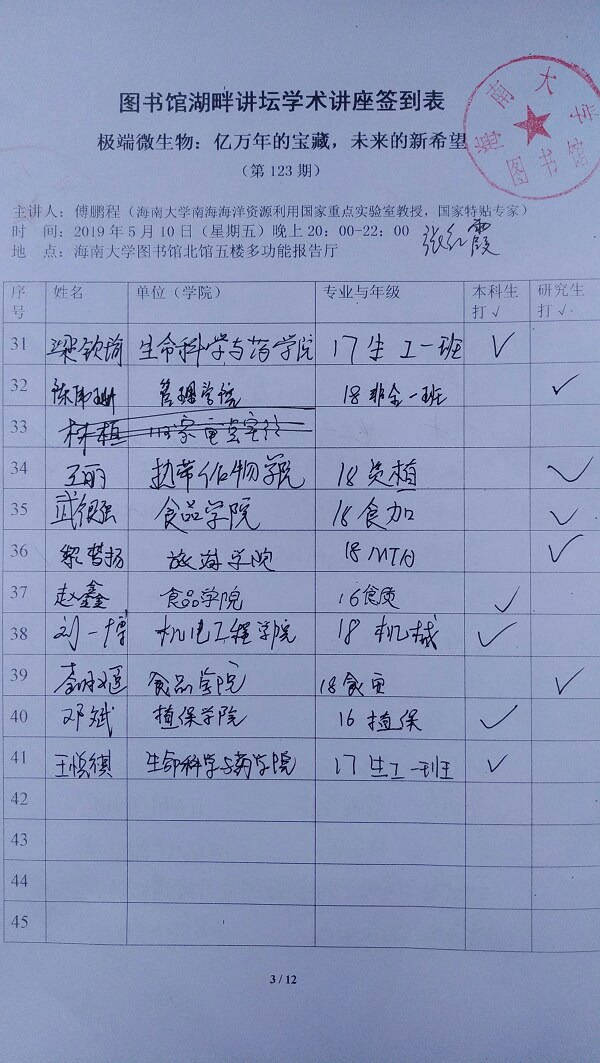 图书馆湖畔讲坛学术讲座签到表
极端微生物：亿万年的宝藏，未来的新希望
（第 123 期）
海南大学
图书馆
主讲人：傅鹏程（海南大学南海海洋资源利用国家重点实验室教授，国家特贴专家）
时 间：2019 年 5 月 10 日（星期五）晚上 20：00-22：00
张红霞
地 点：海南大学图书馆北馆五楼多功能报告厅
序号 姓名 单位（学院） 专业与年级 本科生打√ 研究生打√
31 梁钦瑜 生命科学与药学院 17生工一班 √
32 管理学院 18非全一班 √
33 林植
34 王丽 热带作物学院 18资植 √
35 武银强 食品学院 18食加 √
36 黎梦扬 旅游学院 18MTA √
37 赵鑫 食品学院 16食质 √
38 刘一博 机电工程学院 18机械 √
39 食品学院 √
40 邓斌 植保学院 16植保 √
41 王悦祺 生命科学与药学院 17生工一班 √
42
43
44
45
3 / 12